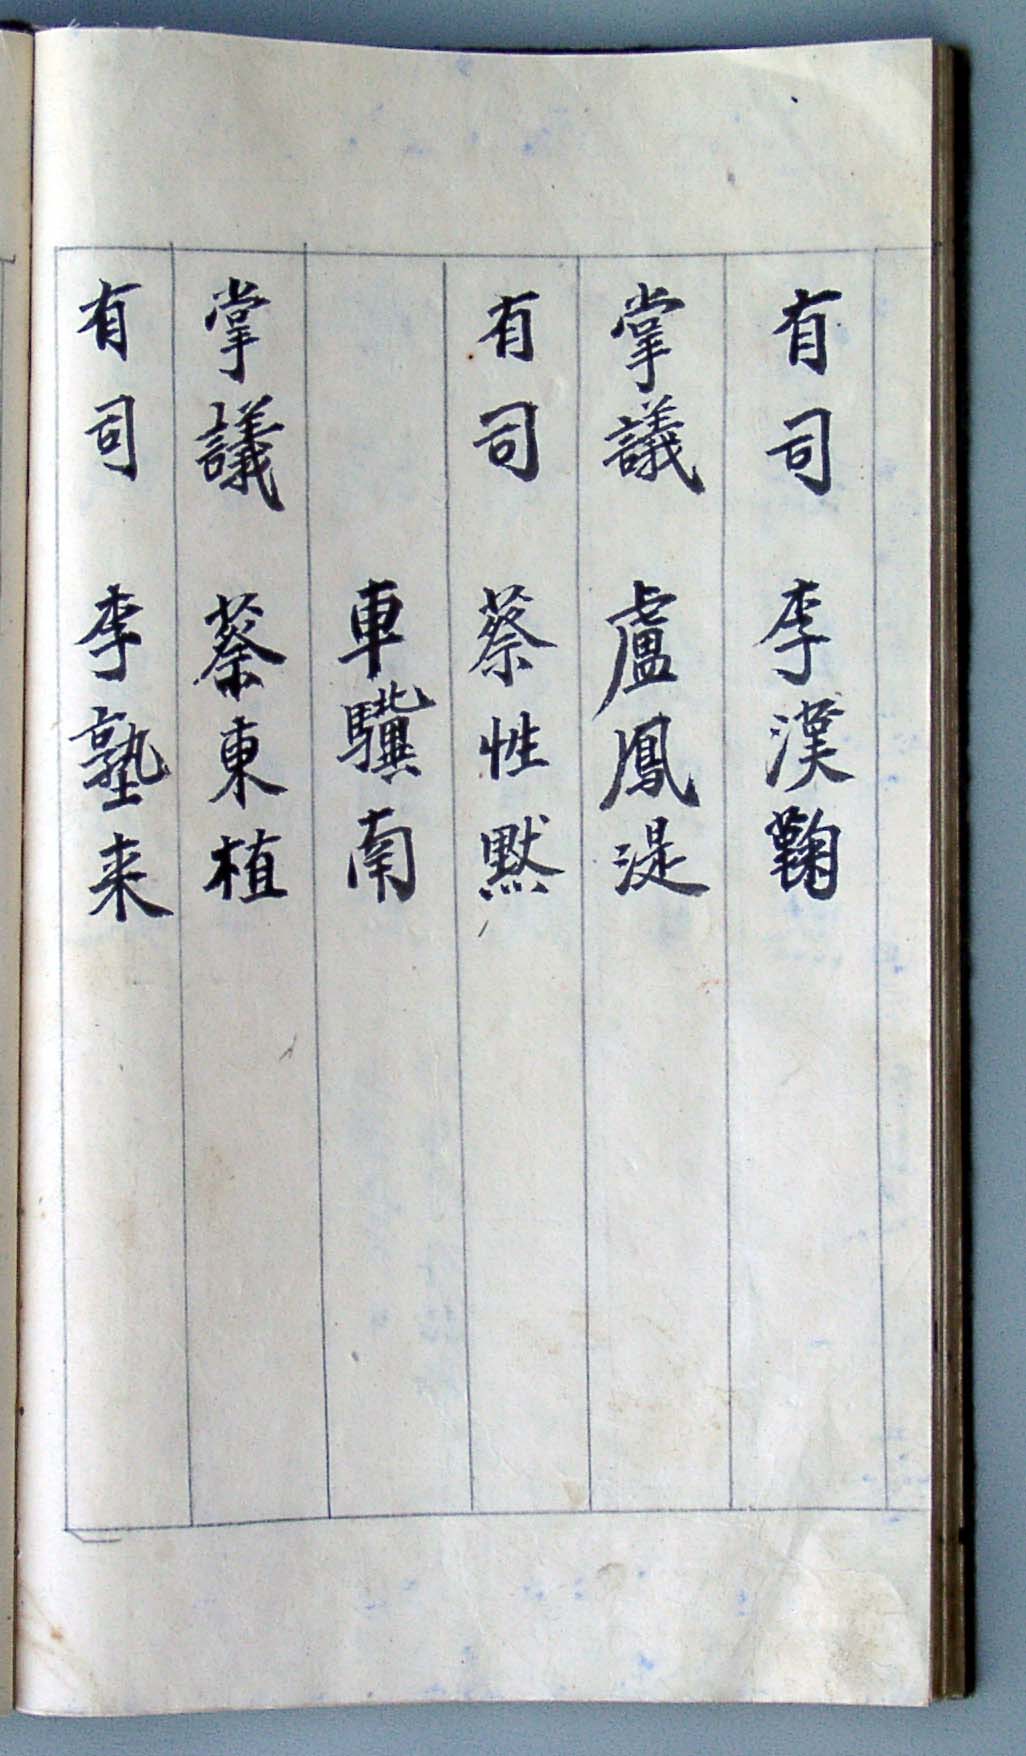 有司 李漢鞠
掌議 盧鳳湜
有司 蔡性默
車驥南
掌議 蔡東植
有司 李塾来